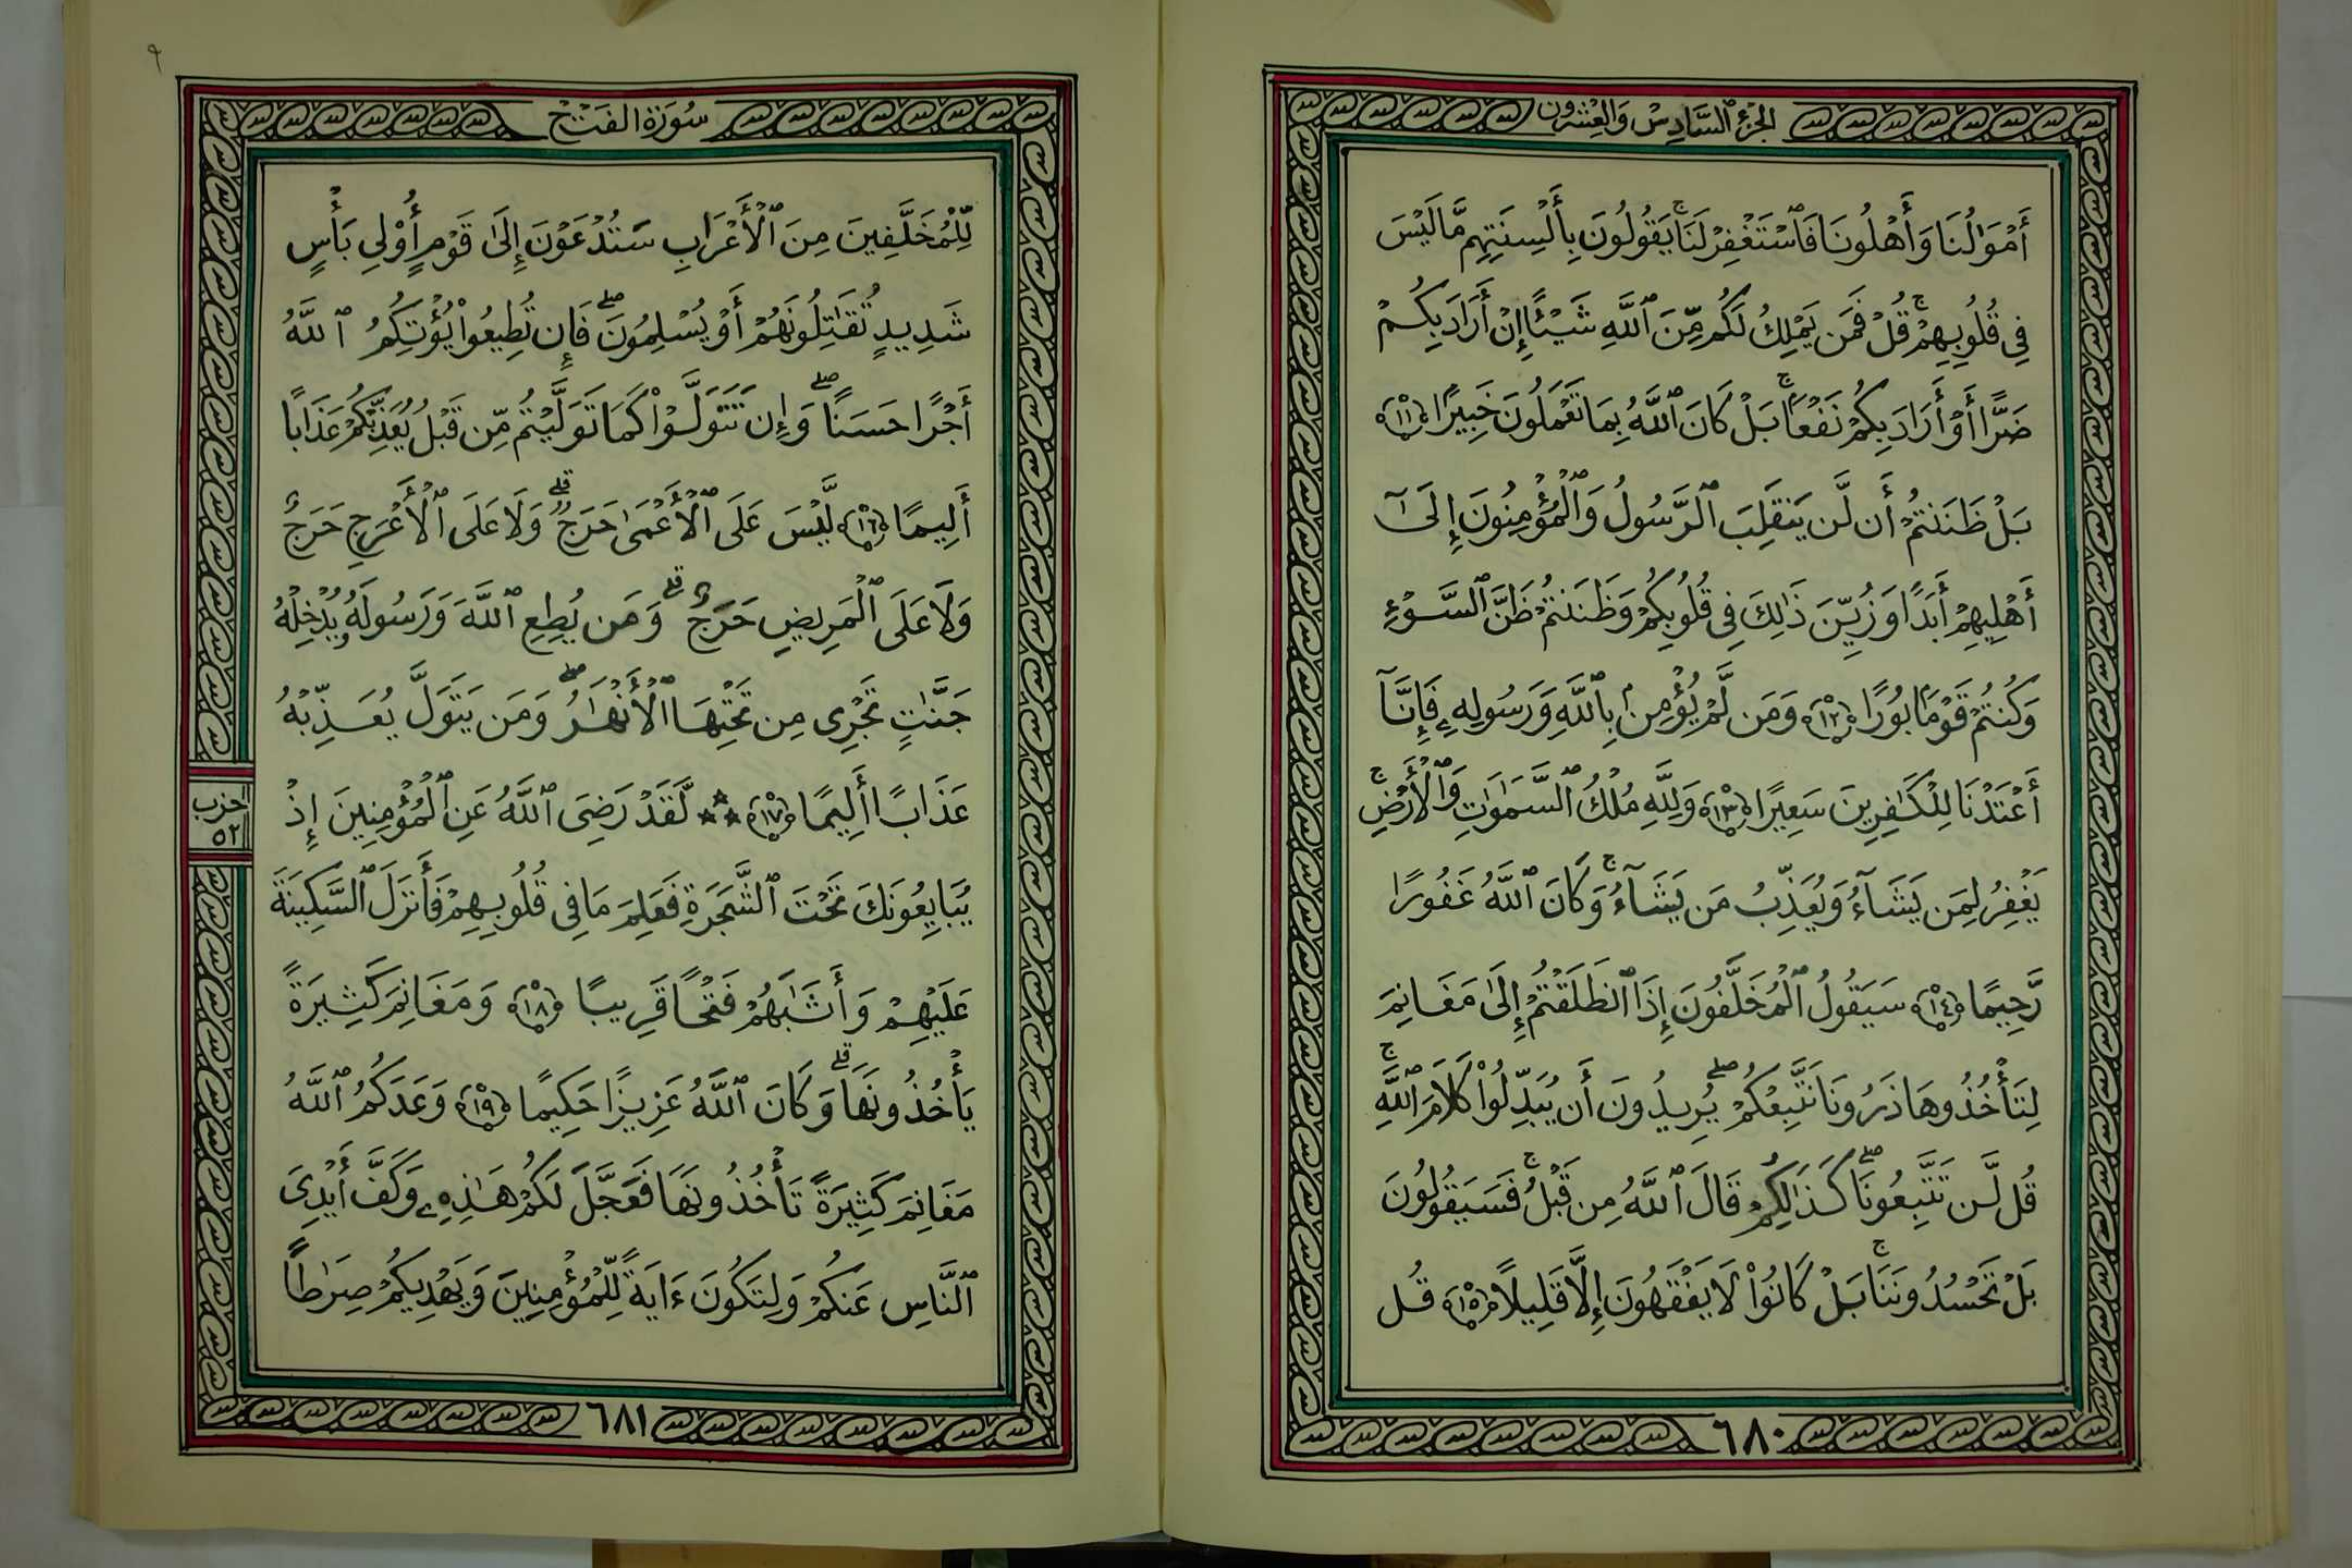 الجزء السادس والعشرون
أَمْوَٰلُنَا وَأَهْلُونَا فَٱسْتَغْفِرْ لَنَاۚ يَقُولُونَ بِأَلْسِنَتِهِم مَّا لَيْسَ
فِى قُلُوبِهِمْۚ قُلْ فَمَن يَمْلِكُ لَكُم مِّنَ ٱللَّهِ شَيْـًٔا إِنْ أَرَادَ بِكُمْ
ضَرًّا أَوْ أَرَادَ بِكُمْ نَفْعًۢاۚ بَلْ كَانَ ٱللَّهُ بِمَا تَعْمَلُونَ خَبِيرًا ﴿١١﴾
بَلْ ظَنَنتُمْ أَن لَّن يَنقَلِبَ ٱلرَّسُولُ وَٱلْمُؤْمِنُونَ إِلَىٰٓ
أَهْلِيهِمْ أَبَدًا وَزُيِّنَ ذَٰلِكَ فِى قُلُوبِكُمْ وَظَنَنتُمْ ظَنَّ ٱلسَّوْءِ
وَكُنتُمْ قَوْمًۢا بُورًا ﴿١٢﴾ وَمَن لَّمْ يُؤْمِنۢ بِٱللَّهِ وَرَسُولِهِۦ فَإِنَّآ
أَعْتَدْنَا لِلْكَٰفِرِينَ سَعِيرًا ﴿١٣﴾ وَلِلَّهِ مُلْكُ ٱلسَّمَٰوَٰتِ وَٱلْأَرْضِۚ
يَغْفِرُ لِمَن يَشَآءُ وَيُعَذِّبُ مَن يَشَآءُۚ وَكَانَ ٱللَّهُ غَفُورًا
رَّحِيمًا ﴿١٤﴾ سَيَقُولُ ٱلْمُخَلَّفُونَ إِذَا ٱنطَلَقْتُمْ إِلَىٰ مَغَانِمَ
لِتَأْخُذُوهَا ذَرُونَا نَتَّبِعْكُمْۖ يُرِيدُونَ أَن يُبَدِّلُوا۟ كَلَٰمَ ٱللَّهِۚ
قُل لَّن تَتَّبِعُونَاۖ كَذَٰلِكُمْ قَالَ ٱللَّهُ مِن قَبْلُۚ فَسَيَقُولُونَ
بَلْ تَحْسُدُونَنَاۚ بَلْ كَانُوا۟ لَا يَفْقَهُونَ إِلَّا قَلِيلًا ﴿١٥﴾ قُل
٦٨٠
٩
سُورَة الفَتْح
لِّلْمُخَلَّفِينَ مِنَ ٱلْأَعْرَابِ سَتُدْعَوْنَ إِلَىٰ قَوْمٍ أُو۟لِى بَأْسٍ
شَدِيدٍ تُقَٰتِلُونَهُمْ أَوْ يُسْلِمُونَۖ فَإِن تُطِيعُوا۟ يُؤْتِكُمُ ٱللَّهُ
أَجْرًا حَسَنًاۖ وَإِن تَتَوَلَّوْا۟ كَمَا تَوَلَّيْتُم مِّن قَبْلُ يُعَذِّبْكُمْ عَذَابًا
أَلِيمًا ﴿١٦﴾ لَّيْسَ عَلَى ٱلْأَعْمَىٰ حَرَجٌۗ وَلَا عَلَى ٱلْأَعْرَجِ حَرَجٌ
وَلَا عَلَى ٱلْمَرِيضِ حَرَجٌۗ وَمَن يُطِعِ ٱللَّهَ وَرَسُولَهُۥ يُدْخِلْهُ
جَنَّٰتٍ تَجْرِى مِن تَحْتِهَا ٱلْأَنْهَٰرُۖ وَمَن يَتَوَلَّ يُعَذِّبْهُ
عَذَابًا أَلِيمًا ﴿١٧﴾ ⁂ لَّقَدْ رَضِىَ ٱللَّهُ عَنِ ٱلْمُؤْمِنِينَ إِذْ
حزب
٥٢
يُبَايِعُونَكَ تَحْتَ ٱلشَّجَرَةِ فَعَلِمَ مَا فِى قُلُوبِهِمْ فَأَنزَلَ ٱلسَّكِينَةَ
عَلَيْهِمْ وَأَثَٰبَهُمْ فَتْحًا قَرِيبًا ﴿١٨﴾ وَمَغَانِمَ كَثِيرَةً
يَأْخُذُونَهَاۗ وَكَانَ ٱللَّهُ عَزِيزًا حَكِيمًا ﴿١٩﴾ وَعَدَكُمُ ٱللَّهُ
مَغَانِمَ كَثِيرَةً تَأْخُذُونَهَا فَعَجَّلَ لَكُمْ هَٰذِهِۦ وَكَفَّ أَيْدِىَ
ٱلنَّاسِ عَنكُمْ وَلِتَكُونَ ءَايَةً لِّلْمُؤْمِنِينَ وَيَهْدِيَكُمْ صِرَٰطًا
٦٨١